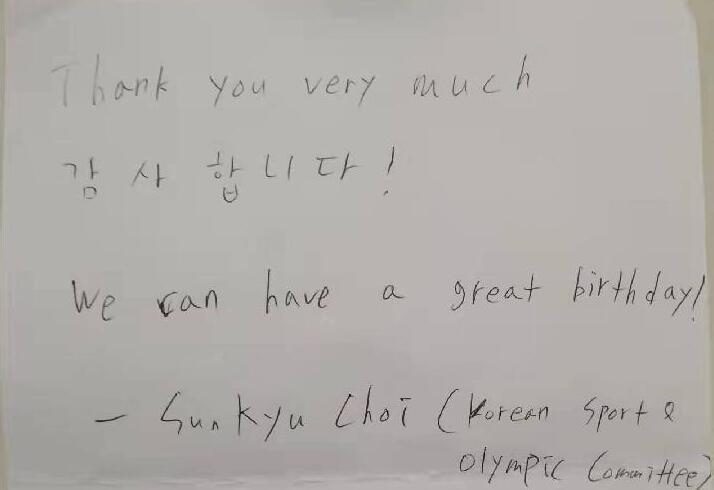 Thank you very much
감사합니다!
We can have a great birthday!
- Sunkyu Choi (Korean Sport &
Olympic Committee)